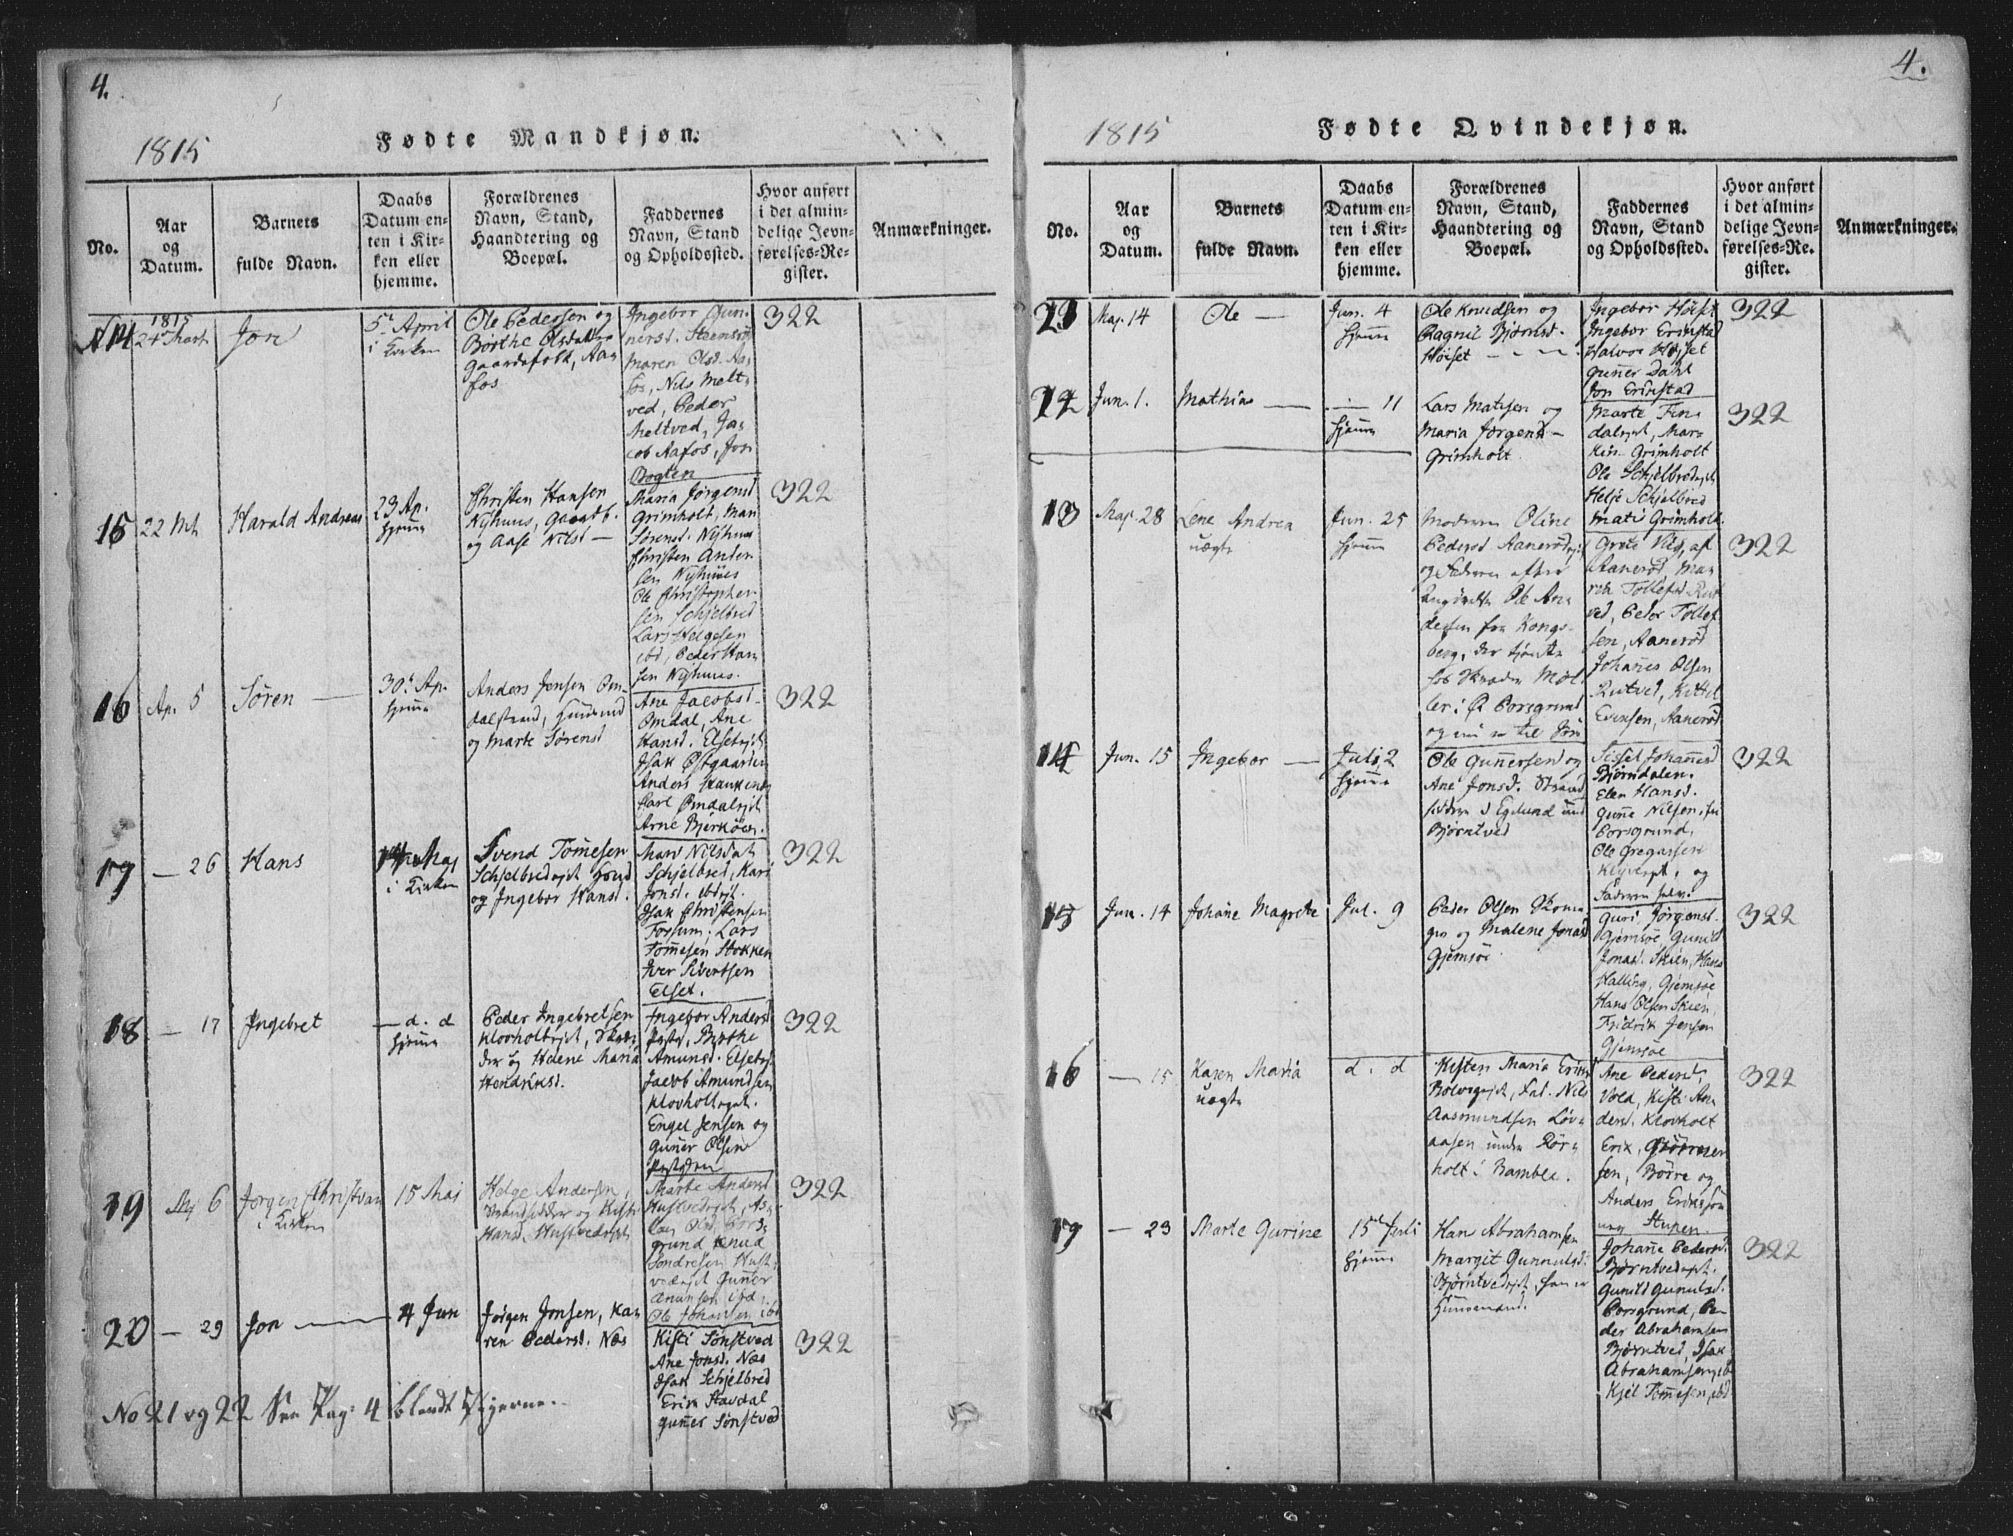 4.
1815
Fødte Mandkjøn.
No.
Aar
og
Datum.
Barnets
fulde Navn.
Daabs
Datum en-
ten i Kir-
ken eller
hjemme.
Forældrenes
Navn, Stand,
Haandtering og
Boepæl.
Faddernes
Navn, Stand
og Opholdssted.
Hvor anført
i det almin-
delige Jevn-
førelses-Re-
gister.
Anmærkninger.
14
1815
24 Mart
Jon
5t April
i Kirken
Ole Pedersen og
Børthe Olsdatter
Gaardsfolk, Aa-
fos
Ingebor Gun-
nersd.
Maren Olsd. Aa-
fos, Nils Melt-
ved, Peder
Meltved, Ja-
cob Aafos, Jon
Bogten
322
15
22 Mt
Harald Andreas
23 Ap.
hjemme
Christen Hansen
Nyhuus, Gaardb.
og Aase Nilsd —
Maria Jørgensd
Grimholt, Mari
Sørensd. Nyhuus
Christen Ander-
sen Nyhuus
Ole Christopher-
sen Schjelbred
Lars Helgesen
ibd, Peder Han-
sen Nyhuus.
322
16
Ap. 5
Søren —
30t Ap.
hjemme
Anders Jensen Om-
dalstrand, Huusmd
og Marte Sørensd
Ane Jacobsd
Omdal, Ane
Hansd. Elsetejet
Isak Østgaarden
Anders Haukenes
Carl Omdalsejet
Arne Bjerkøen.
322
17
— 26
Hans
14 Maj
i Kirken
Svend Tomesen
Schjelbredejet Huusd
og Ingebor Hansd.
Mari Nilsdat
Schjelbred, Kari
Jonsd. ibdejt.
Isak Christensen
Fossum, Lars
Tomesen Stokken
Iver Sivertsen
Elset.
322
18
— 17
Ingebret
— d. d
hjemme
Peder Ingebretsen
Klovholtejet, Skræd-
der og Helene Maria
Hendriksd.
Ingebor Andersd
Børthe
Amunsd. Elsetejt
Jacob Amundsen
Klovholtejet.
Engel Jensen og
Guner Olsen
322
19
Mj 6
Jørgen Christian
i Kirken
15 Maj
Helge Andersen,
Strandsidder og Kisti
Hansd. Hustvedejet
Marte Andersd
Hustvedejet, As-
lau Olsd Pors-
grund Knud
Sondresen Hust-
vedejet Guner
Anunsen ibd,
Ole Johansen ibd
322
20
— 29
Jon —
4 Jun
Jørgen Jonsen, Ka-
ren Pedersd. Næs
Kisti Sønstved
Ane Jonsd. Næs
Isak Schjelbred
Erik Stavdal
Guner Sønstved
322
No 21 og 22 See Pag: 4 blandt Pigerne.
4.
1815
Fødte Qvindekjøn.
No.
Aar
og
Datum.
Barnets
fulde Navn.
Daabs
Datum en-
ten i Kir-
ken eller
hjemme.
Forældrenes
Navn, Stand,
Haandtering og
Boepæl.
Faddernes
Navn, Stand
og Opholdssted.
Hvor anført
i det almin-
delige Jevn-
førelses-Re-
gister.
Anmærkninger.
21
Maj. 14
Ole —
Jun. 4
hjemme
Ole Knudsen og
Ragnil Bjørnsd.
Høiset
Ingebor Høiset
Ingebor Erikstad
Halvor Høiset
Guner Dahl
Jon Erikstad
322
22
Jun. 1.
Mathias —
— 11
hjemme
Lars Matisen og
Maria Jørgensd —
Grimholt
Marte Fin-
dalsejet, Mar-
Grimholt
Ole Schjelbredejet
Helje Schjelbred
Mati Grimholt
322
13
Maj. 28
Lene Andrea
uægte
Jun. 25
hjemme
Moderen Oline
Pedersd Aanerødejet
og Faderen efter
Angivelse Ole An-
dersen fra Kongs-
berg, der tjente
hos Skræder Møl-
ler i Ø. Porsgrund
og nu er til Søes
Grete Vig, af
Aanerød, Ma-
ria Tollefsd Rut
ved, Peder Tollef-
sen, Aanerød
Johanes Olsen
Rutved, Kittel
Evensen, Aanerød
322
14
Jun. 15
Ingebor —
Juli 2
hjemme
Ole Gunersen og
Ane Jonsd. Strand
siddere i Eglund und
Bjørntved
Sissel Johanesd
Bjørndalen.
Elen Hansd.
Gune Nilsen, fra
Porsgrund,
Ole Gregarsen
Klyveejet, og
Faderen selv.
322
15
Jun. 14
Johane Magrete
Jul. 9
Peder Olsen Skoma-
ger og Malene Jonasd
Gjemsøe
Guri Jørgensd.
Gjemsøe, Gunild
Jonasd. Skien, Hans
Halling, Gjemsøe
Hans Olsen Skien
Fridrik Jensen
Gjemsøe
322
16
— 15
Karen Maria
uægte
d. d
Kisten Maria Eriksd
Bolvigejet, Fad. Nils
Aasmundsen Løv-
aasen under Rør-
holt i Bamble.
Ane Pedersd,
Vold, Kisti An-
dersd. Klovholt
Erik
sen, Børre og
Anders Erikssøn
Stupen.
322
17
— 23
Marte Gurine
15t Juli
hjemme
Han Abrahamsen
Margit Gunnulsd.
Bjørntvedejet, han er
Huusmand.
Johane Pedersd.
Bjørntvedejet.
Gunild Gunulsd.
Porsgrund, Pe-
der Abrahamsen
Bjørntved, Isak
Abrahamsen, ibd
Kjel Tomesen, ibd
322